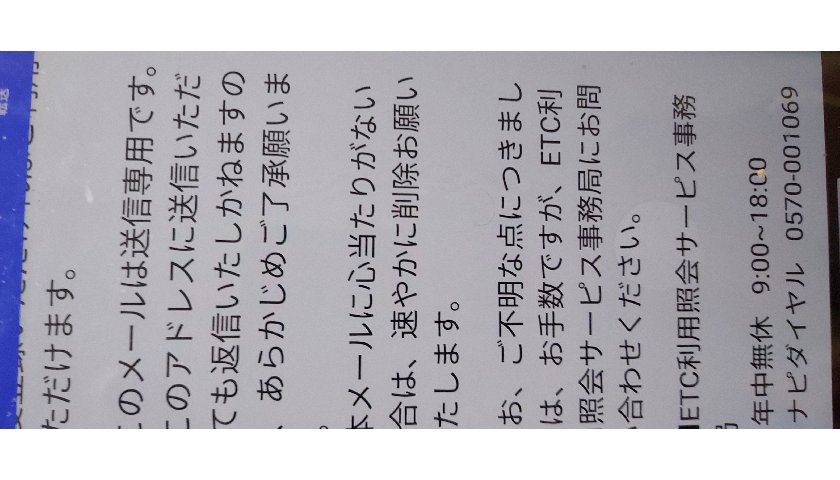 転送
ただけます。
このメールは送信専用です。
このアドレスに送信いただ
ても返信いたしかねますの
、あらかじめご了承願いま
。
本メールに心当たりがない
合は、速やかに削除お願い
たします。
お、ご不明な点につきまし
は、お手数ですが、ETC利
照会サービス事務局にお問
い合わせください。
ETC利用照会サービス事務
局
年中無休 9:00~18:00
ナビダイヤル 0570-001069